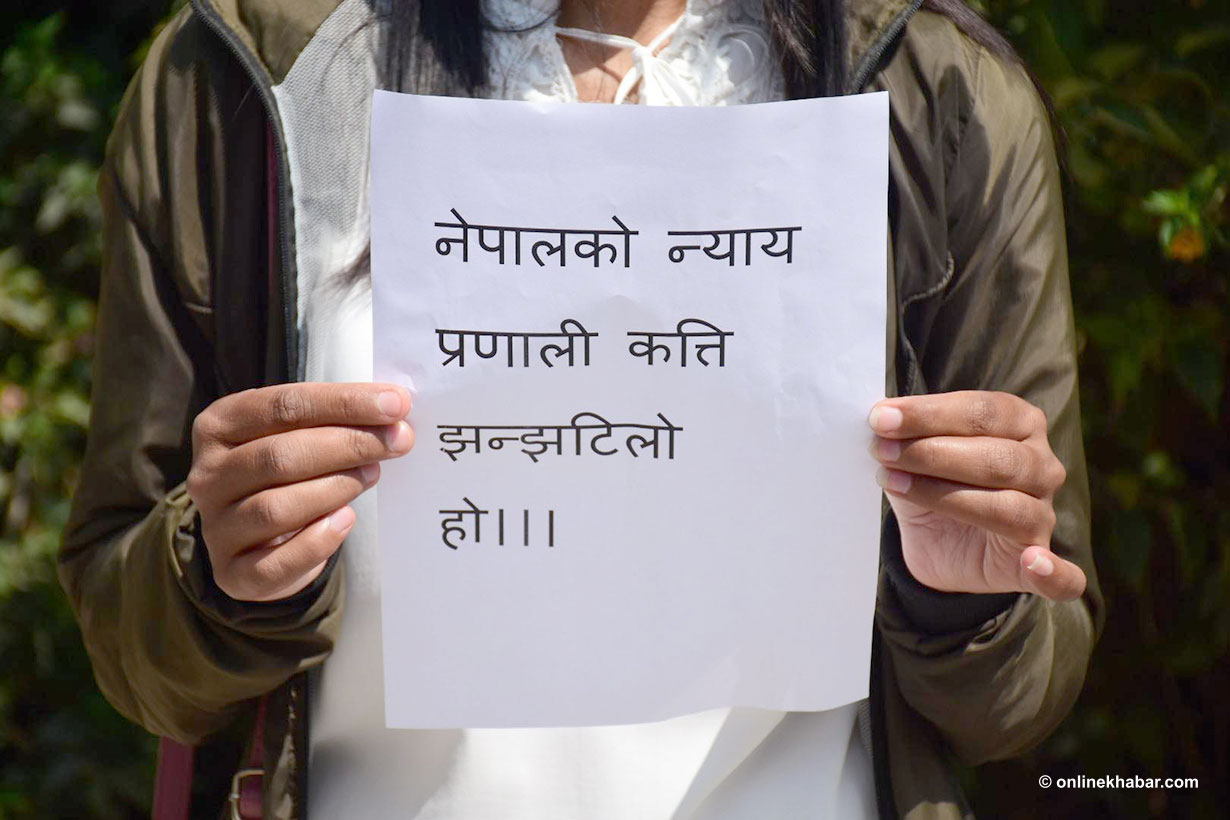 नेपालको न्याय
प्रणाली कत्ति
झन्झटिलो
हो।।।
© onlinekhabar.com